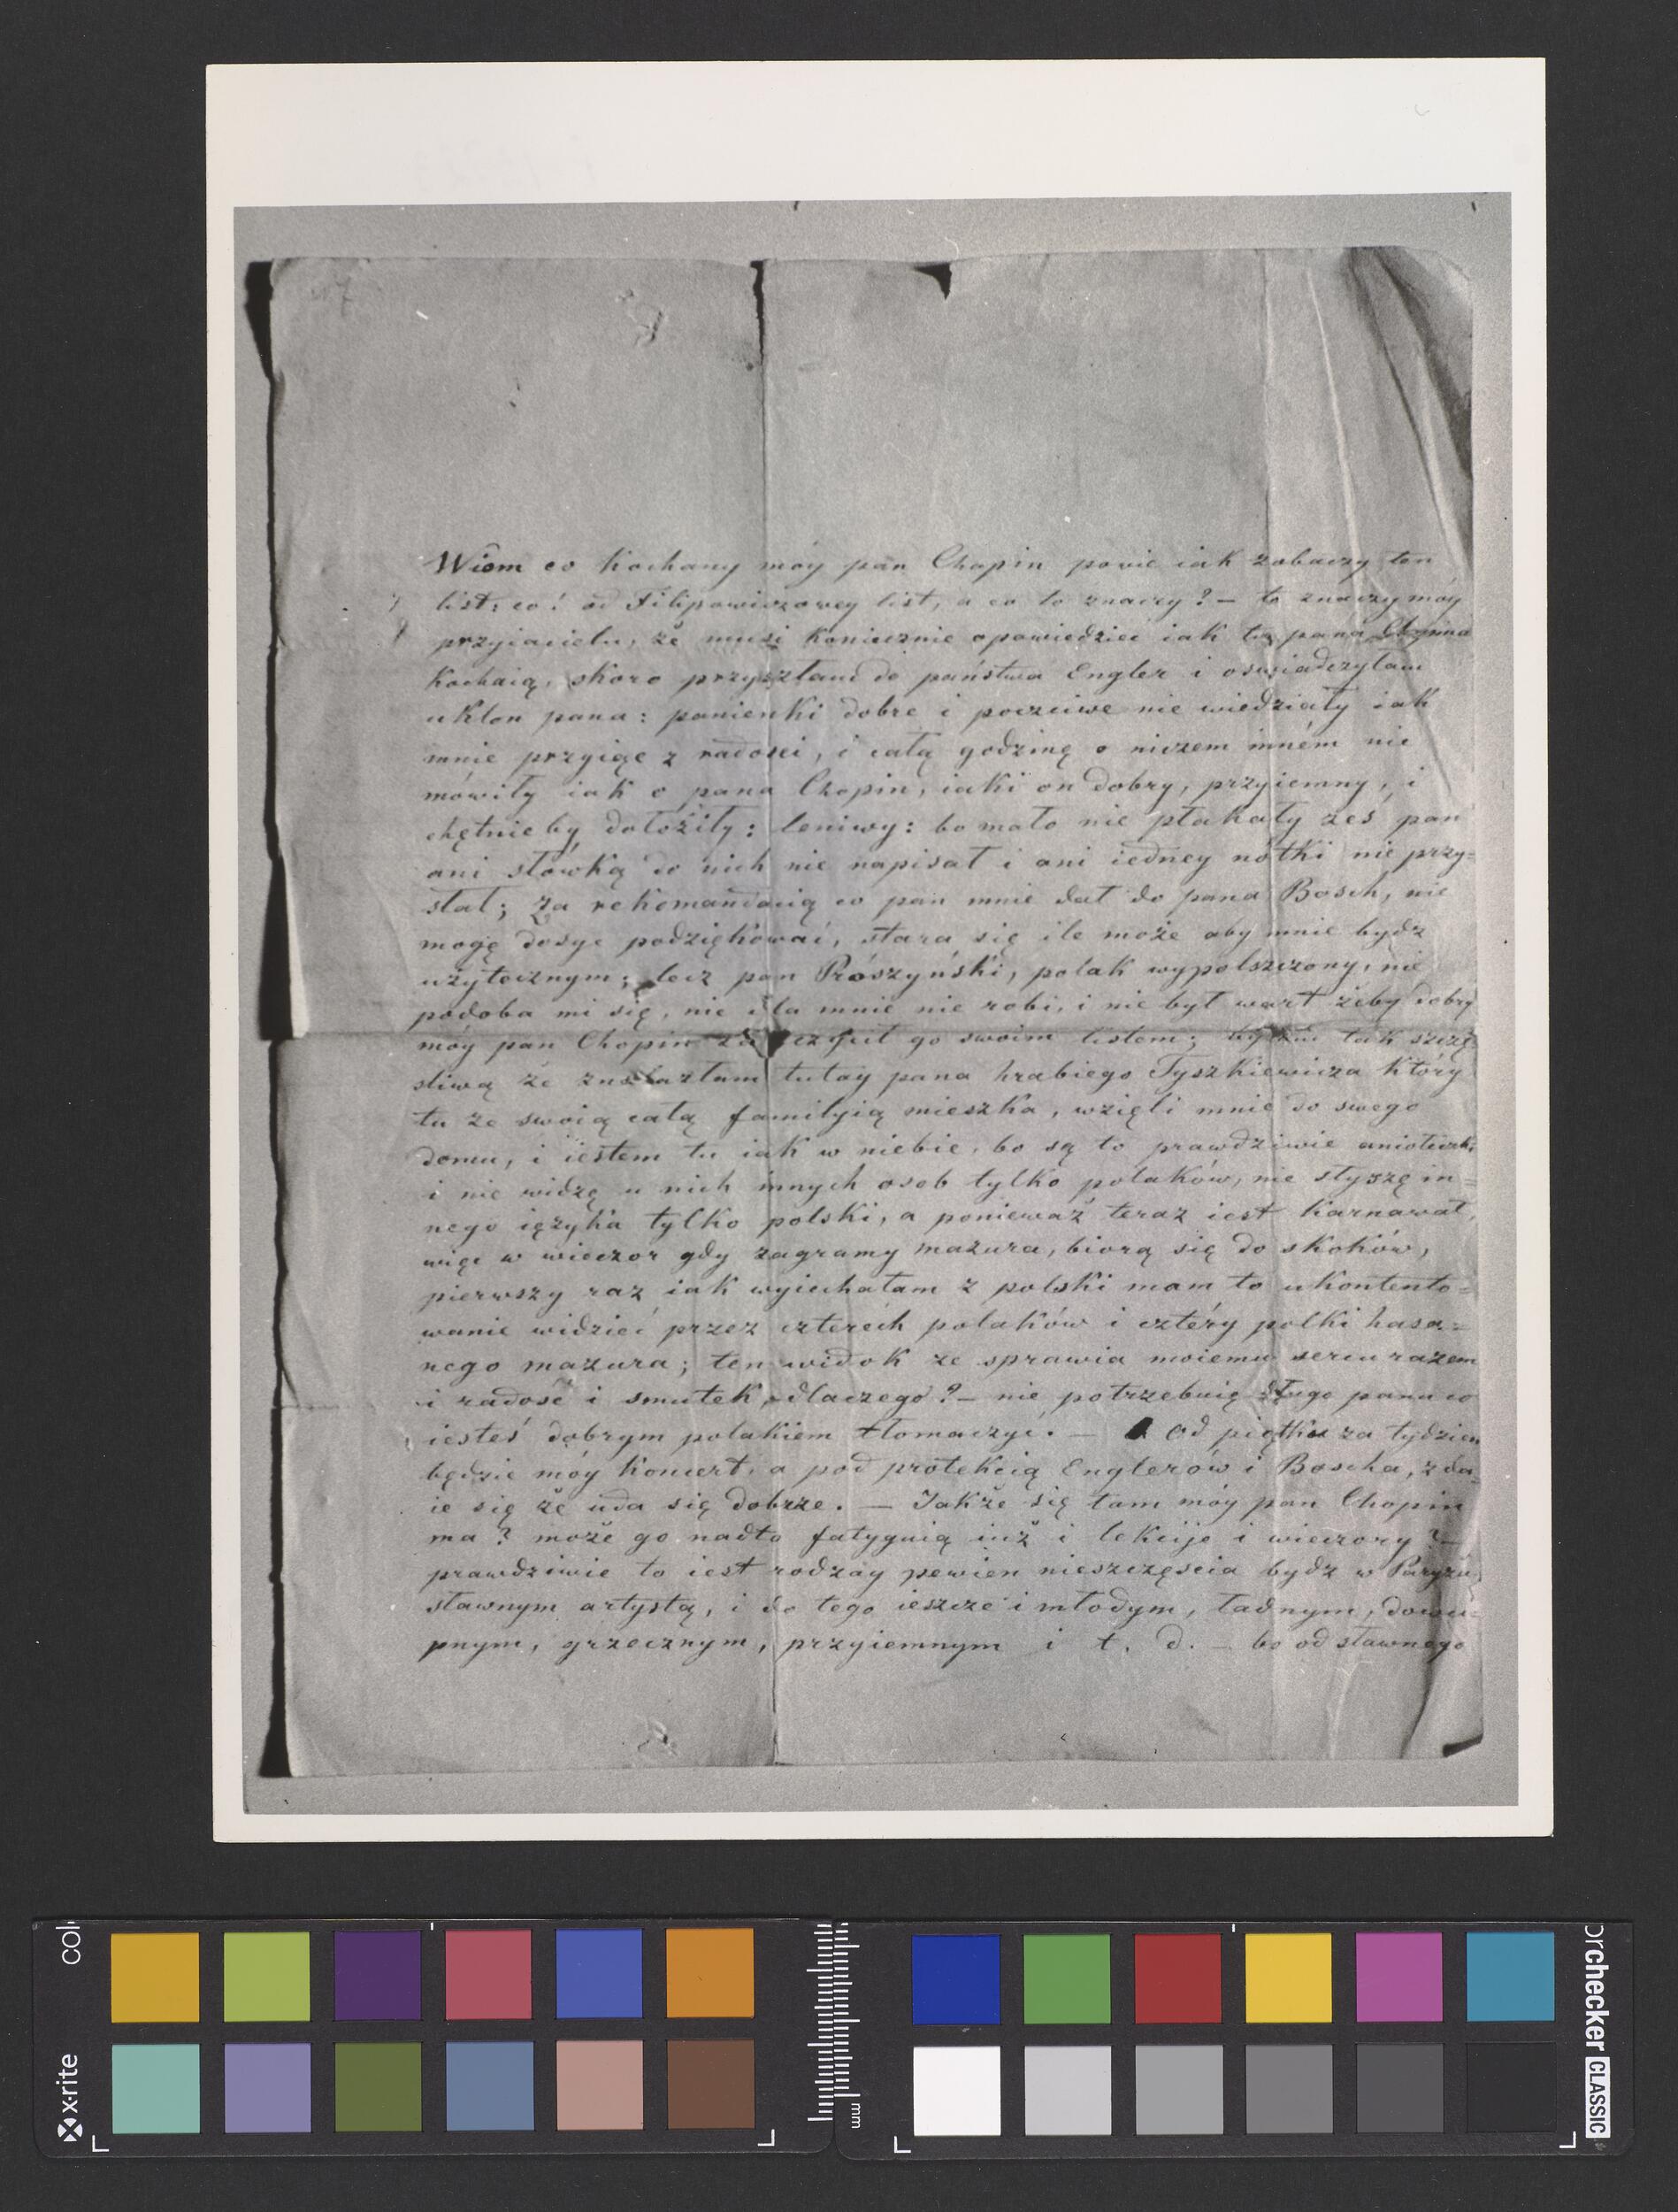 Wiem co kochany móy pan Chopin powie iak zobaczy ten
list: co! od Filipowiczowey list, a co to znaczy? — to znaczy móy
przyiacielu, że musi koniecznie opowiedziec iak tu pana
kochaią, skoro przyszłam do państwa Engler i oswiadczyłam
ukłon pana: panienki dobre i poczciwe nie wiedziały iak
mnie przyiąc z radosci, i całą godzinę o niczem inném nie
mówiły iak o pana Chopin, iaki on dobry, przyiemny, i
chętnie by dołożiły: leniwy: bo mało nie płakały żeś pan
ani słówką do nich nie napisał i ani iedney nótki nie przy=
słal; za rekomandacią co pan mnie dał do pana Bosch, nie
mogę dosyc podziękować, stara się ile może aby mnie bydz
użytecznym; lecz pan Prószyński, polak wypolszczony, nie
podoba mi się, nic dla mnie nie robi, i nie był wart żeby dobry
móy pan Chopin go swoim listem; tak szczę=
sliwą że znalazłam tutay pana hrabiego Tyszkiewicza który
tu ze swoią całą familyią mieszka, wzięli mnie do swego
domu, i iestem tu iak w niebie, bo są to prawdziwie aniołeczki
i nie widzę u nich innych osob tylko polaków, nie słyszę in=
nego ięzyka tylko polski, a ponieważ teraz iest karnawał,
więc w wieczor gdy zagramy mazura, biorą się do skoków,
pierwszy raz iak wyiechałam z polski mam to ukontento=
wanie widzieć przez czterech polaków i cztéry polki hasa=
nego mazura; ten widok ze sprawia moiemu sercu razem
i radość i smutek, dlaczego? — nie potrzebuię długo panu co
iesteś dobrym polakiem tłomaczyć. — Od piątku za tydzien
będzie móy koncert, a pod protekcią Englerów i Boscha, zda=
ie się że uda się dobrze. — Jakże się tam móy pan Chopin
ma? może go nadto fatyguią iuż i lekcije i wieczory? —
prawdziwie to iest rodzay pewien nieszczęscia bydz w Paryżu
sławnym artystą, i do tego ieszcze i młodym, ładnym, dowci=
pnym, grzecznym, przyiemnym i t. d. — bo od sławnego
x-rite
mm
checker CLASSIC